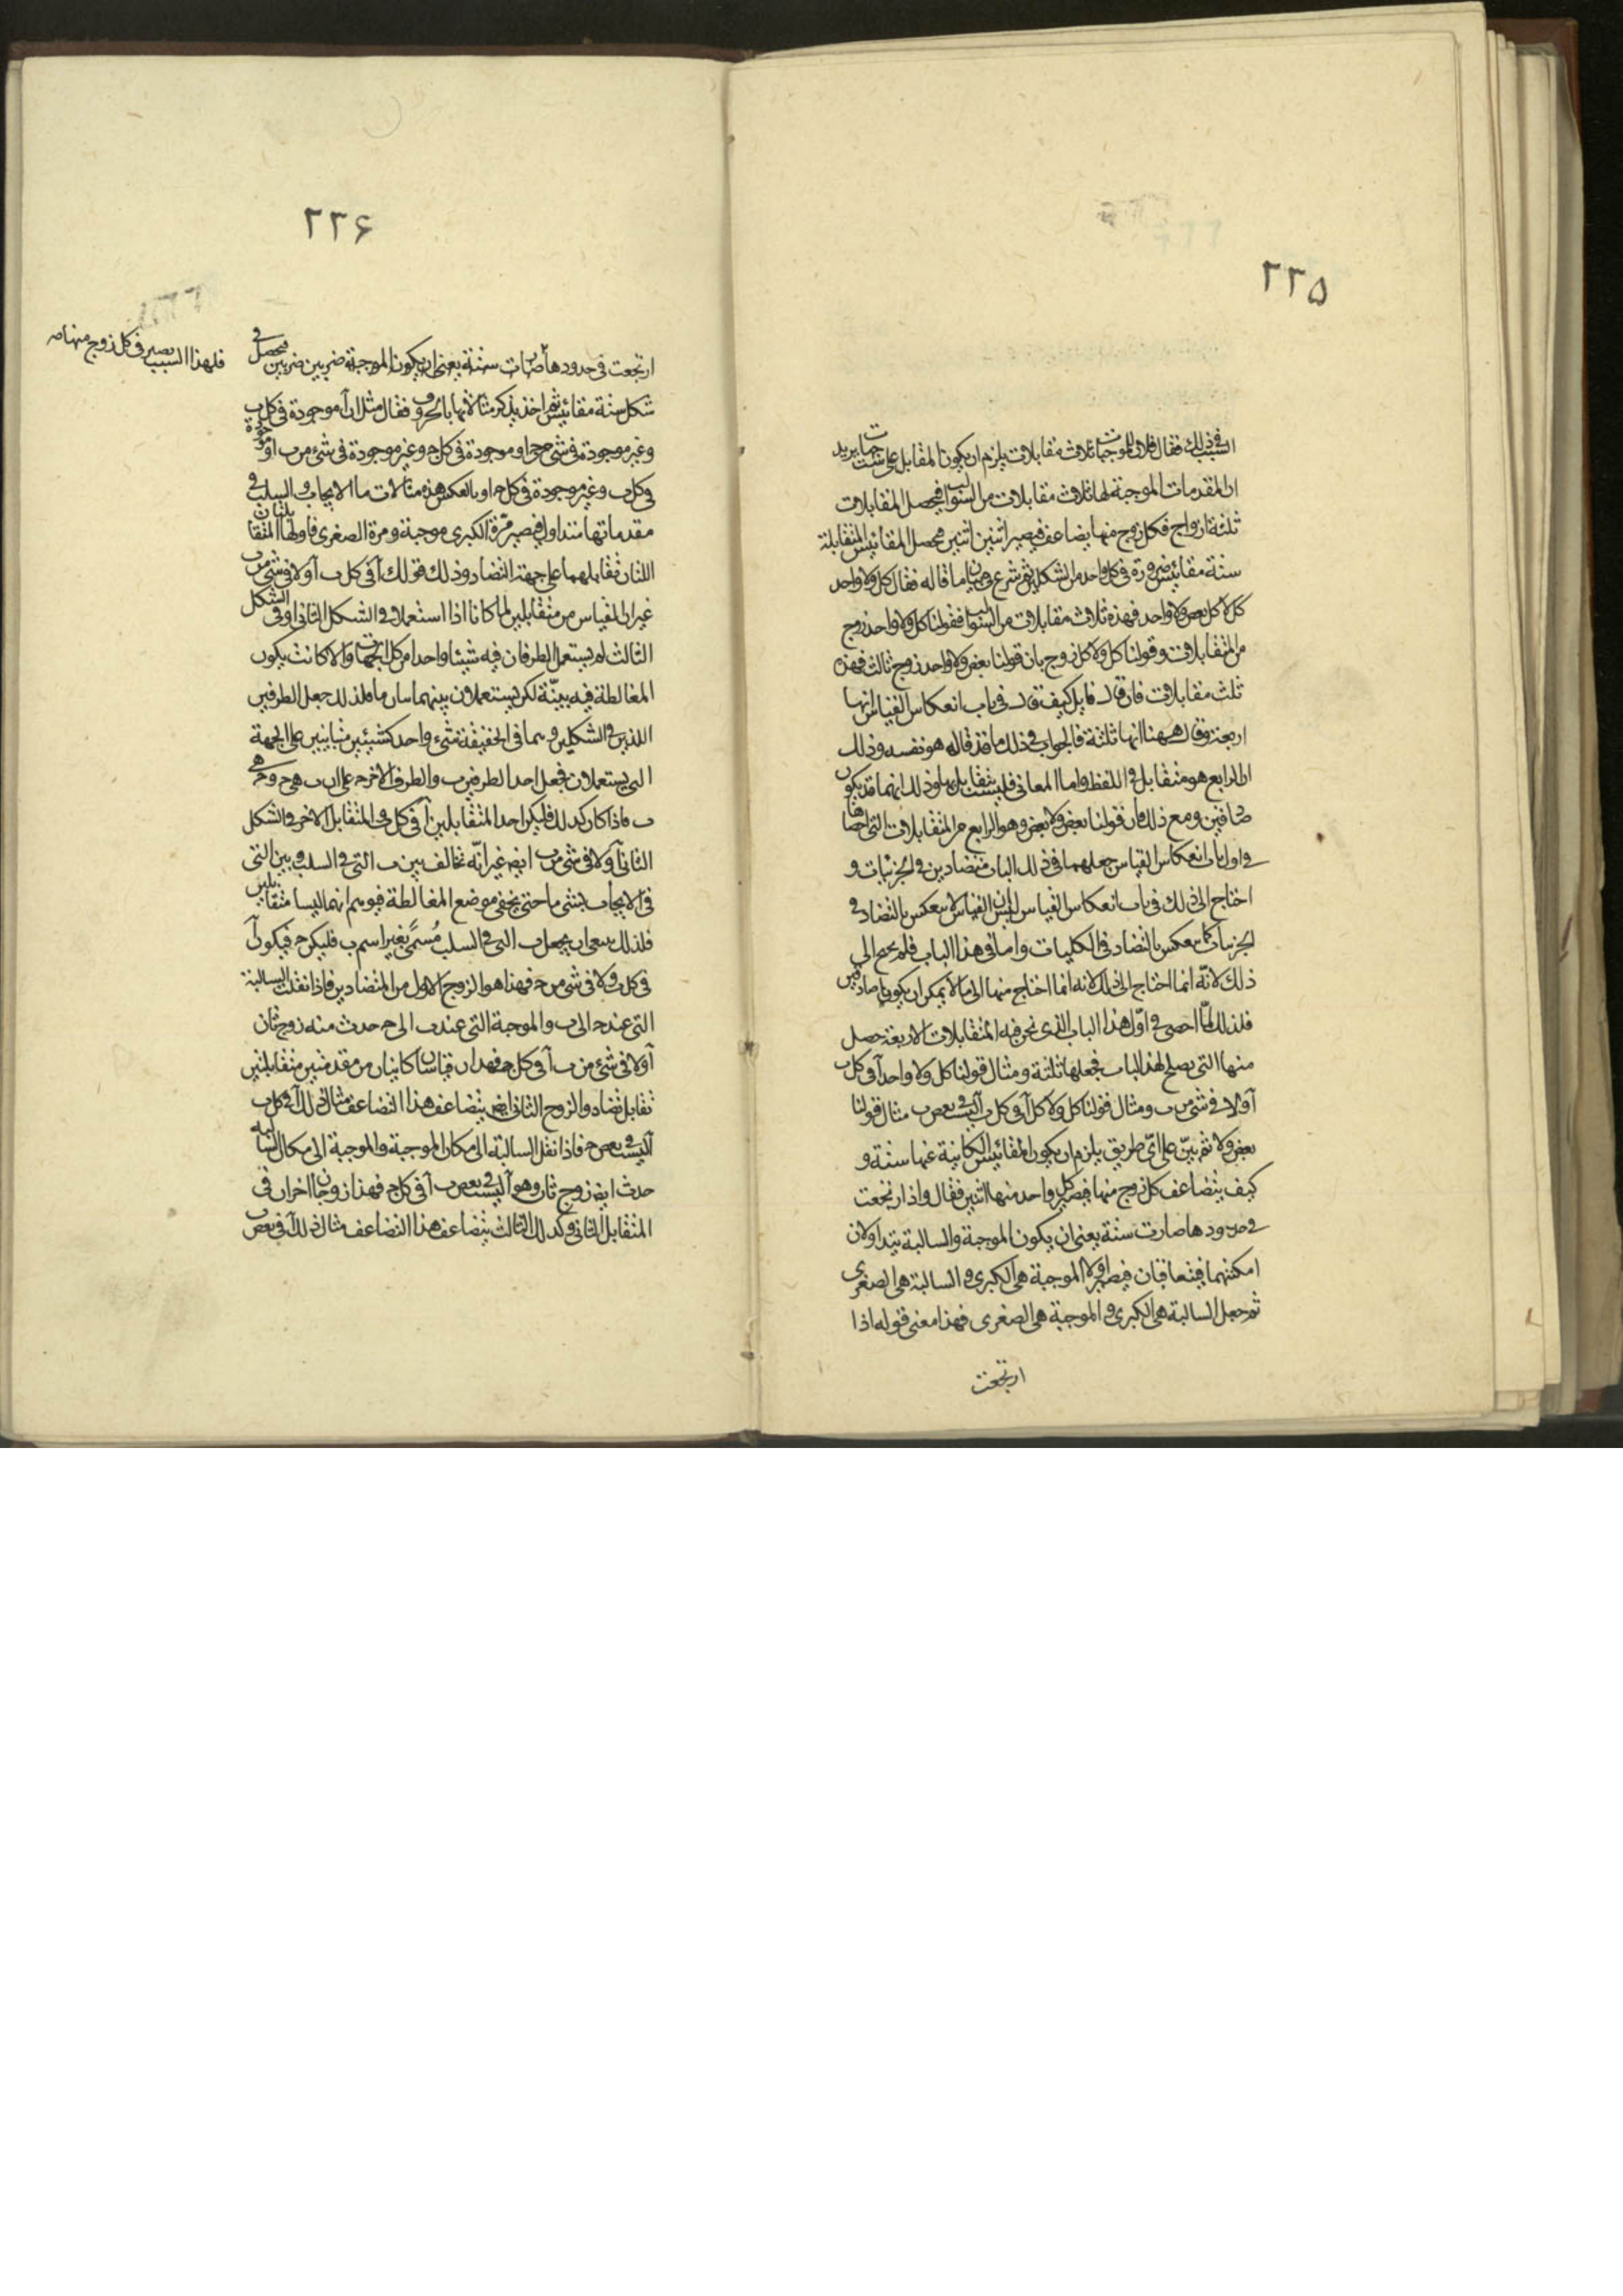 ٢٢٥
السبب في ذلك فقال فلان للموجبات ثلاث مقابلات يلزم ان يكون المقابل على ست جهات يريد
ان المقدمات الموجبة لها ثلاث مقابلات من السوالب فيحصل المقابلات
ثلثة ازواج فكل زوج منها يضاعف فيصير اثنين اثنين فيحصل المقائيس المتقابلة
ستة مقائيس ضرورة في كل واحد من الشكلين ثم شرع في بيان ما قاله فقال كل ولا واحد
كل لا كل بعض ولا واحد فهذه ثلاث مقابلات من السوالب فقولنا كل ولا واحد زوج
من المتقابلات وقولنا كل ولا كل زوج بان قولنا بعض ولا واحد زوج ثالث فهذه
ثلث مقابلات فان قال قايل كيف قال في باب انعكاس القياس انها
اربعة وقال ههنا انها ثلثة فالجواب في ذلك ما قد قاله هو نفسه وذلك
ان الرابع هو متقابل في اللفظ واما المعاني فليست بتقابل وذلك انهما قد يكون
صادقين ومع ذلك فان قولنا بعض ولا بعض وهو الرابع من المتقابلات التي احصاها
في اول باب انعكاس القياس جعلهما في ذلك الباب متضادين في الجزئيات و
احتاج الى ذلك في باب انعكاس القياس ليبين ان القياس لا ينعكس بالتضاد في
الجزئيات كما ينعكس بالتضاد في الكليات واما في هذا الباب فلم يحتج الى
ذلك لانه انما احتاج الى ذلك لانه انما احتاج منها الى ما لا يمكن ان يكونا صادقين
فلذلك لما احصى في اول هذا الباب الذى نحن فيه المتقابلات الاربعة حصل
منها التي يصلح لهذا الباب فجعلها ثلثة ومثال قولنا كل ولا واحد آ في كل ب
آ ولا في شئ من ب ومثال قولنا كل ولا كل آ في كل ب آ ليست في بعض ب مثال قولنا
بعض ولا ثم بين على اى طريق يلزم ان يكون المقائيس الكاينة عنها ستة و
كيف يتضاعف كل زوج منها فيصير كل واحد منها اثنين فقال واذا ارتجعت
في حدودها صارت ستة يعنى ان يكون الموجبة والسالبة يتداولان
امكنتهما فيتعاقبان فيصير اولا الموجبة هي الكبرى والسالبة هي الصغرى
ثم جعل السالبة هي الكبرى والموجبة هي الصغرى فهذا معنى قوله اذا
ارتجعت
٢٢۶
ارتجعت في حدودها صارت ستة يعنى ان يكون الموجبة ضربين ضربين فيحصل في
فلهذا السبب يصير في كل زوج منها صـ
شكل ستة مقائيس ثم اخذ يذكر مثالاتها بالحروف فقال مثل ان آ موجودة في كل ب
وغير موجودة في شئ من ج او موجودة في كل ج وغير موجودة في شئ من ب او موجودة
في كل ب وغير موجودة في كل ج او بالعكس هذه مثالات ما الايجاب والسلب في
مقدماتها متداول فيصير مرة الكبرى موجبة ومرة الصغرى فاولها المتقابلتان
اللتان تقابلهما على جهة التضاد وذلك قولك آ في كل ب آ ولا في شئ من ب
غير ان القياس من متقابلين لما كانا اذا استعملا في الشكل الثاني او في الشكل
الثالث لم يستعمل الطرفان فيه شيئا واحدا من كل الجهات والا كانت يكون
المغالطة فيه بينة لكن يستعملان بينهما ما فلذلك جعل الطرفين
اللذين في الشكلين وهما في الحقيقة شئ واحد كشيئين متباينين على الجهة
التي يستعملان فجعل احد الطرفين ب والطرف الاخر ج على ان ب هي ج وج هي
ب فاذا كان كذلك فليكن احد المتقابلين آ في كل ب والمتقابل الاخر في الشكل
الثاني آ ولا في شئ من ب ايضا غير انه تخالف بين ب التي في السلب وبين التي
في الايجاب بشئ ما حتى يخفى موضع المغالطة فيوهم انهما ليسا متقابلين
فلذلك ينبغي ان يجعل ب التي في السلب مُسمّى بغير اسم ب فليكن ج فيكون آ
في كل ب ولا في شئ من ج فهذا هو الزوج الاول من المتضادين فاذا نقلت السالبة
التي عند ج الى ب والموجبة التي عند ب الى ج حدث منه زوج ثان
آ ولا في شئ من ب آ في كل ج فهذان قياسان كاينان من مقدمتين متقابلتين
تقابل تضاد والزوج الثاني ايضا يتضاعف هذا التضاعف مثال ذلك آ في كل ب
آ ليست في بعض ج فاذا نقل السالبة الى مكان الموجبة والموجبة الى مكان السالبة
حدث ايضا زوج ثان وهو آ ليست في بعض ب آ في كل ج فهذا زوجان اخران في
المتقابل الثاني وكذلك الثالث يتضاعف هذا التضاعف مثال ذلك آ في بعض ب